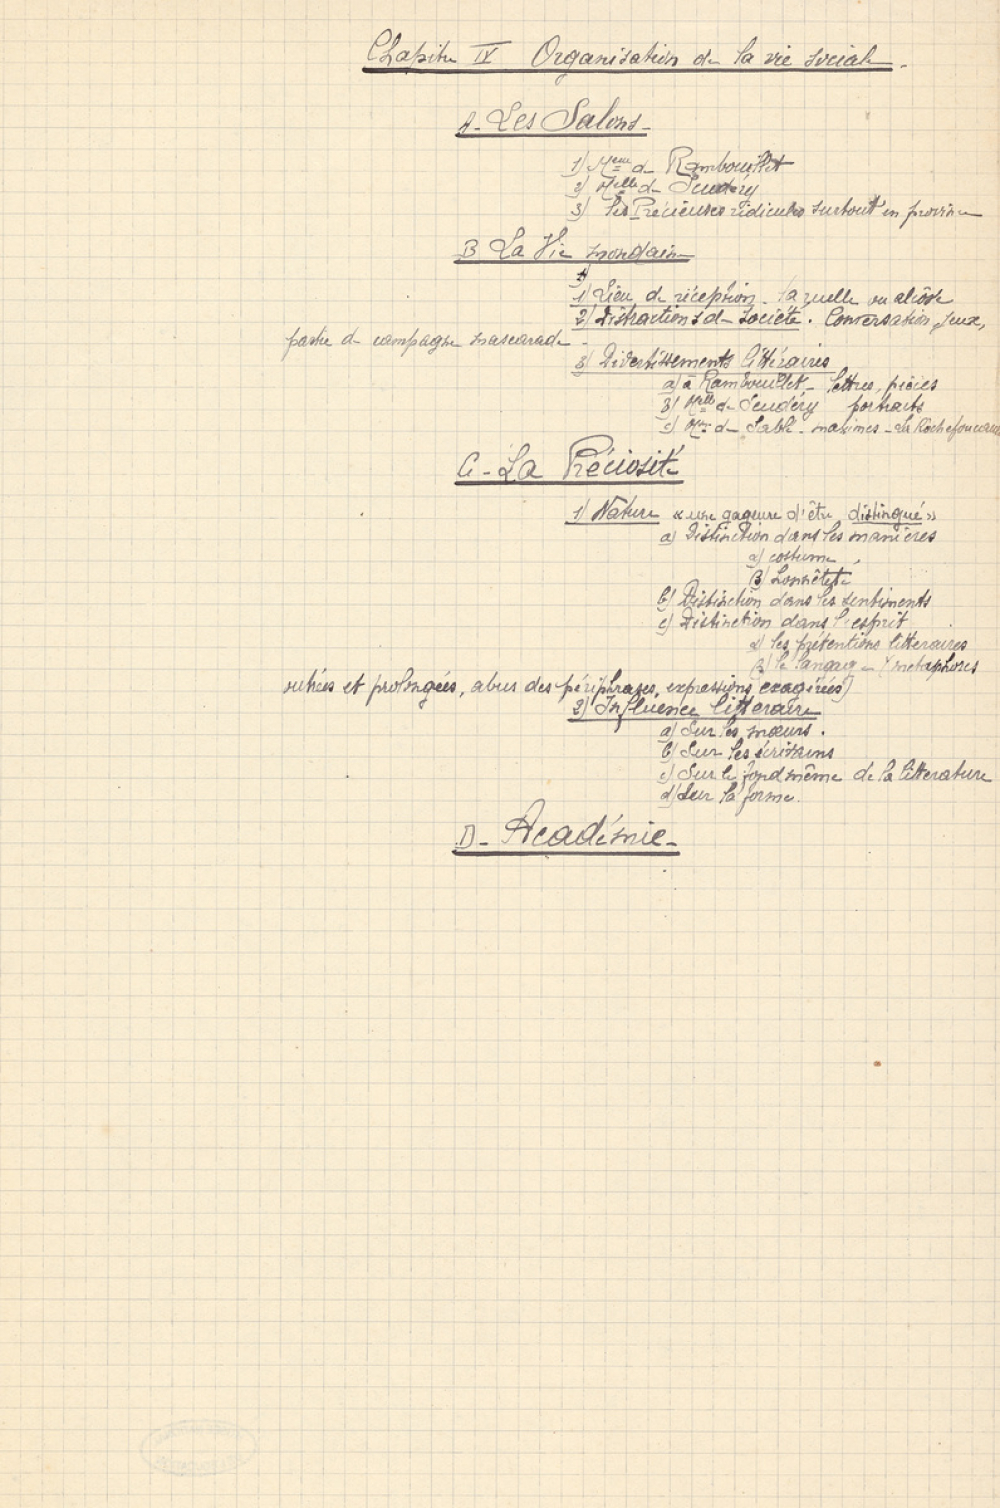 Chapitre IV Organisation de la vie sociale.
A - Les Salons -
1) Mme de Rambouillet
2) Melle de Scudéry
3) Les Précieuses ridicules surtout en province
B La Vie mondaine
1) Lieu de réception - la ruelle ou alcôve
2) Distractions de société. Conversation, jeux,
partie de campagne mascarade -
3) Divertissements littéraires
a) à Rambouillet - lettres, pièces
b) Melle de Scudéry portraits
c) Mme de Sablé - maximes - La Rochefoucauld
C - La Préciosité
1) Nature « une gageure d'être distingué »
a) Distinction dans les manières
α) costume
β) honnêteté
b) Distinction dans les sentiments
c) Distinction dans l'esprit
α) les prétentions littéraires
β) le langage - (métaphores
et prolongées, abus des périphrases, expressions exagérées)
2) Influence littéraire
a) Sur les mœurs.
b) Sur les écrivains
c) Sur le fond même de la littérature
d) Sur la forme.
D - Académie -